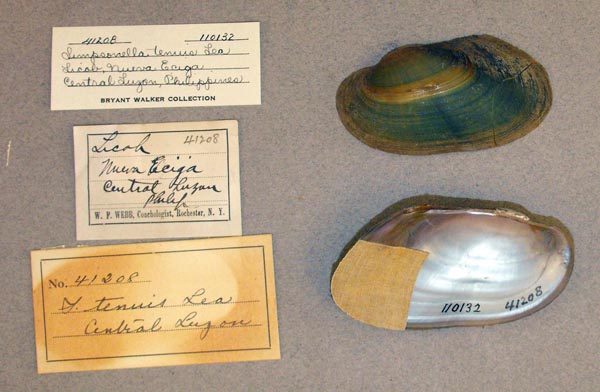 41208 110132
Simpsonella tenuis Lea
Licob, Nueva Eciga
Central Luzon, Philippines
BRYANT WALKER COLLECTION
Licob 41208
Nueva Ecija
Central Luzon
Philip
W. F. WEBB, Conchologist, Rochester, N. Y.
No. 41208
tenuis Lea
Central Luzon
110132 41208